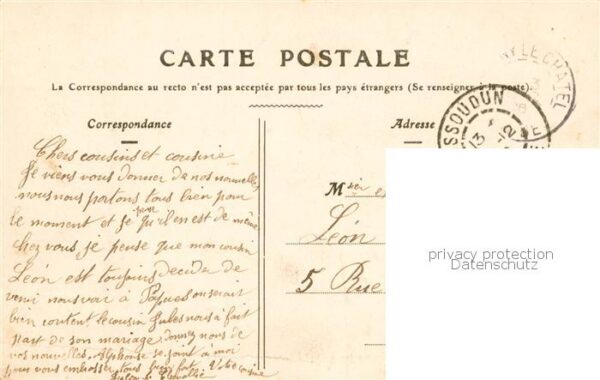 CARTE POSTALE
La Correspondance au recto n'est pas acceptée par tous les pays étrangers (Se renseigner à la poste).
Correspondance
Adresse
ISSOUDUN
13
Chers cousins et cousine
Je viens vous donner de nos nouvelles
nous nous portons tous bien pour
le moment et je pense qu'il en est de même
chez vous. je pense que mon cousin
Léon est toujours décidé de
venir nous voir à Pâques on serait
bien content le cousin Jules nous à fait
part de son mariage donnez nous de
vos nouvelles. Alphonse se joint à moi
pour vous embrasser tous bien fort. Votre cousine
Msier et
Léon
5 Rue
privacy protection
Datenschutz